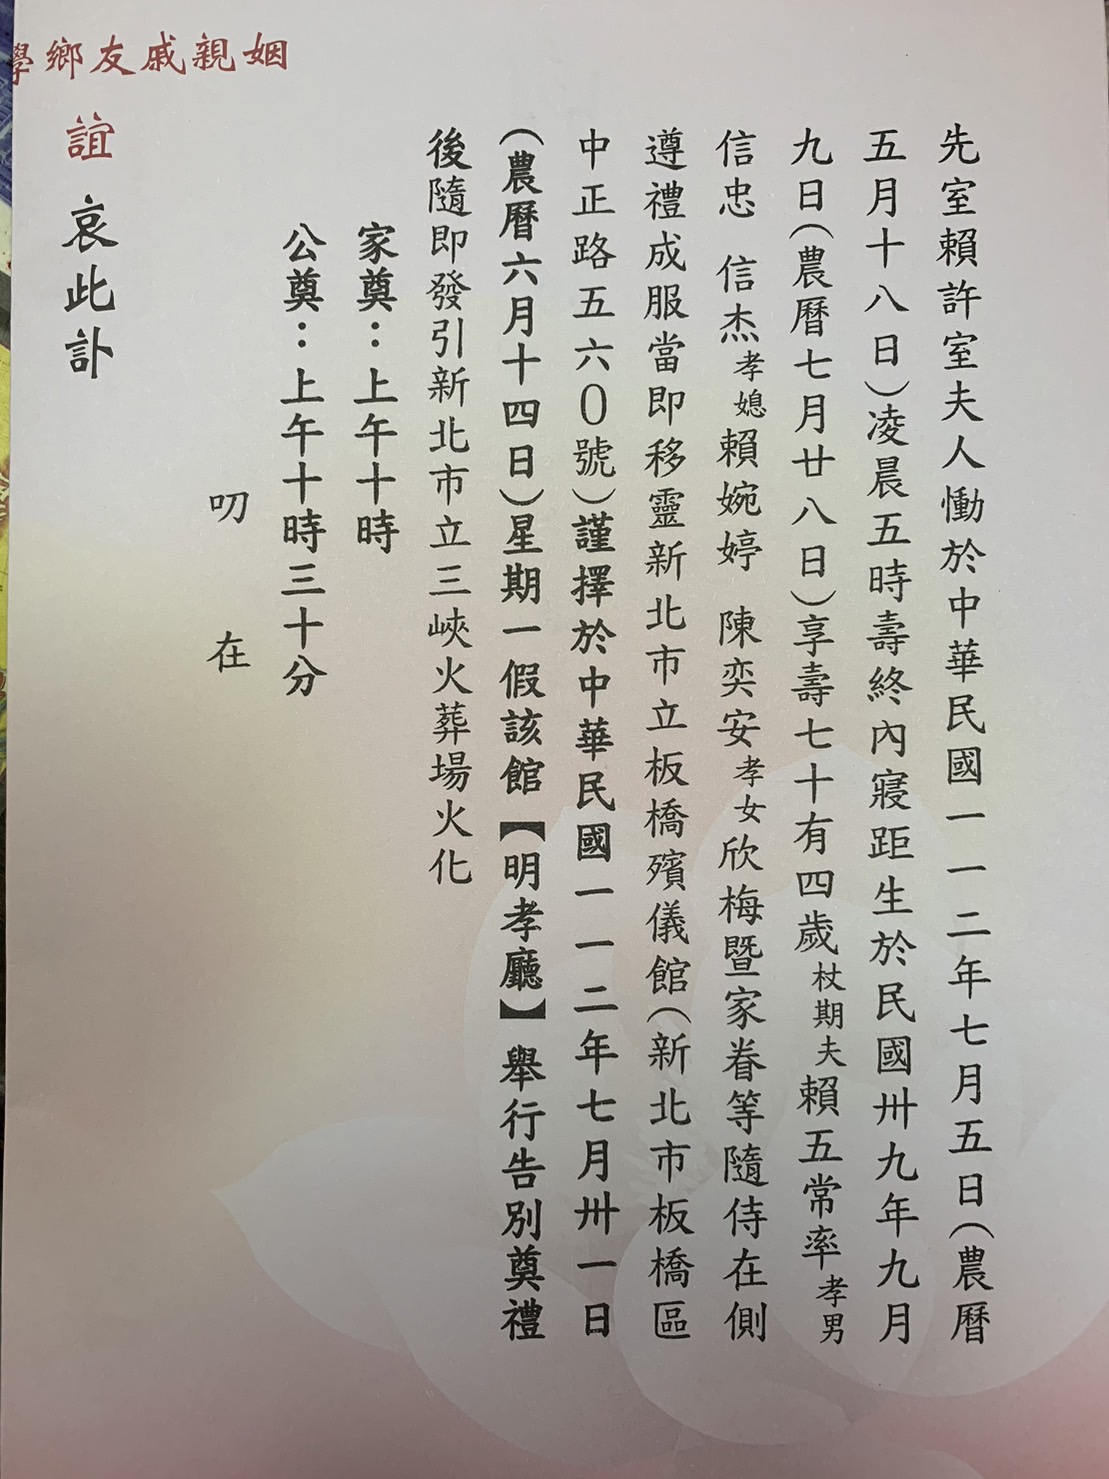 先室賴許室夫人慟於中華民國一一二年七月五日(農曆
五月十八日)凌晨五時壽終內寢距生於民國卅九年九月
九日(農曆七月廿八日)享壽七十有四歲杖期夫賴五常率孝男
信忠 信杰孝媳賴婉婷 陳奕安孝女欣梅暨家眷等隨侍在側
遵禮成服當即移靈新北市立板橋殯儀館(新北市板橋區
中正路五六0號)謹擇於中華民國一一二年七月卅一日
(農曆六月十四日)星期一假該館【明孝廳】舉行告別奠禮
後隨即發引新北市立三峽火葬場火化
家奠：上午十時
公奠：上午十時三十分
叨 在
姻親戚友鄉學
誼 哀此訃